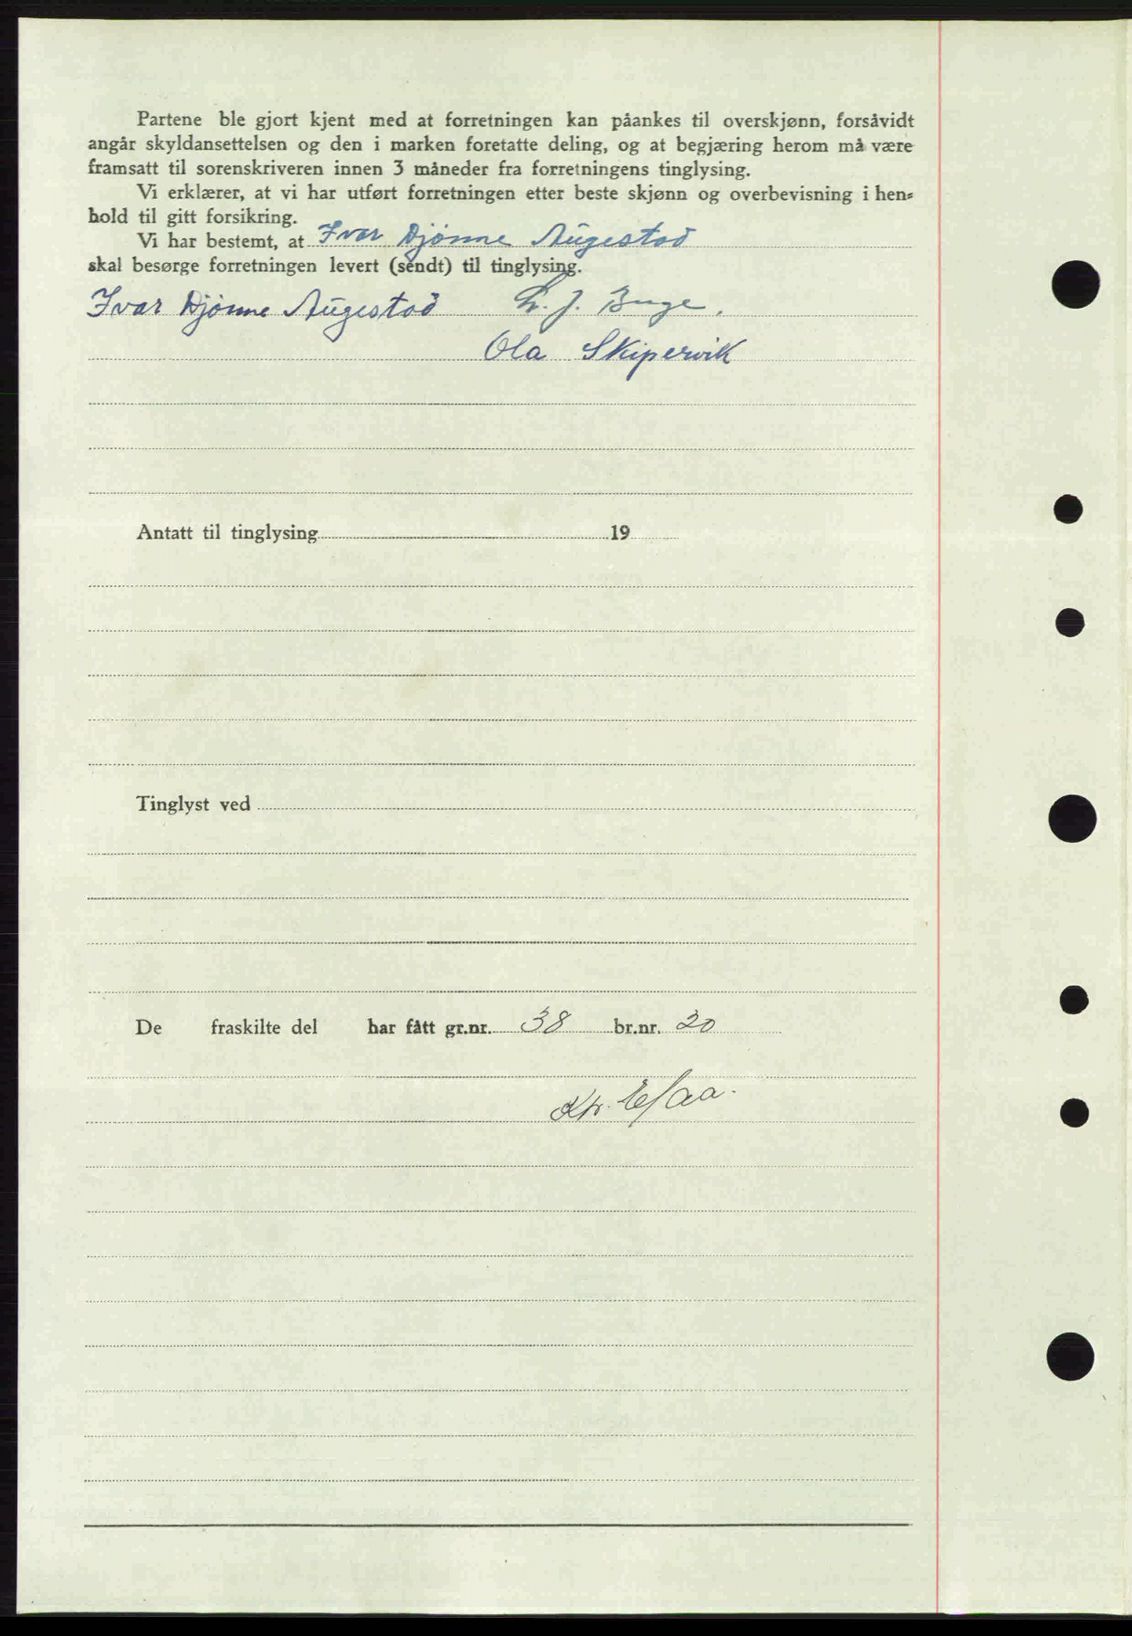 Partene ble gjort kjent med at forretningen kan påankes til overskjønn, forsåvidt
angår skyldansettelsen og den i marken foretatte deling, og at begjæring herom må være
framsatt til sorenskriveren innen 3 måneder fra forretningens tinglysing.
Vi erklærer, at vi har utført forretningen etter beste skjønn og overbevisning i hen-
hold til gitt forsikring.
Vi har bestemt, at Ivar Djønne Augestad
skal besørge forretningen levert (sendt) til tinglysing.
Ivar Djønne Augestad J.
Ola Skipervik
Antatt til tinglysing 19
Tinglyst ved
De fraskilte del har fått gr.nr. 38 br.nr. 20